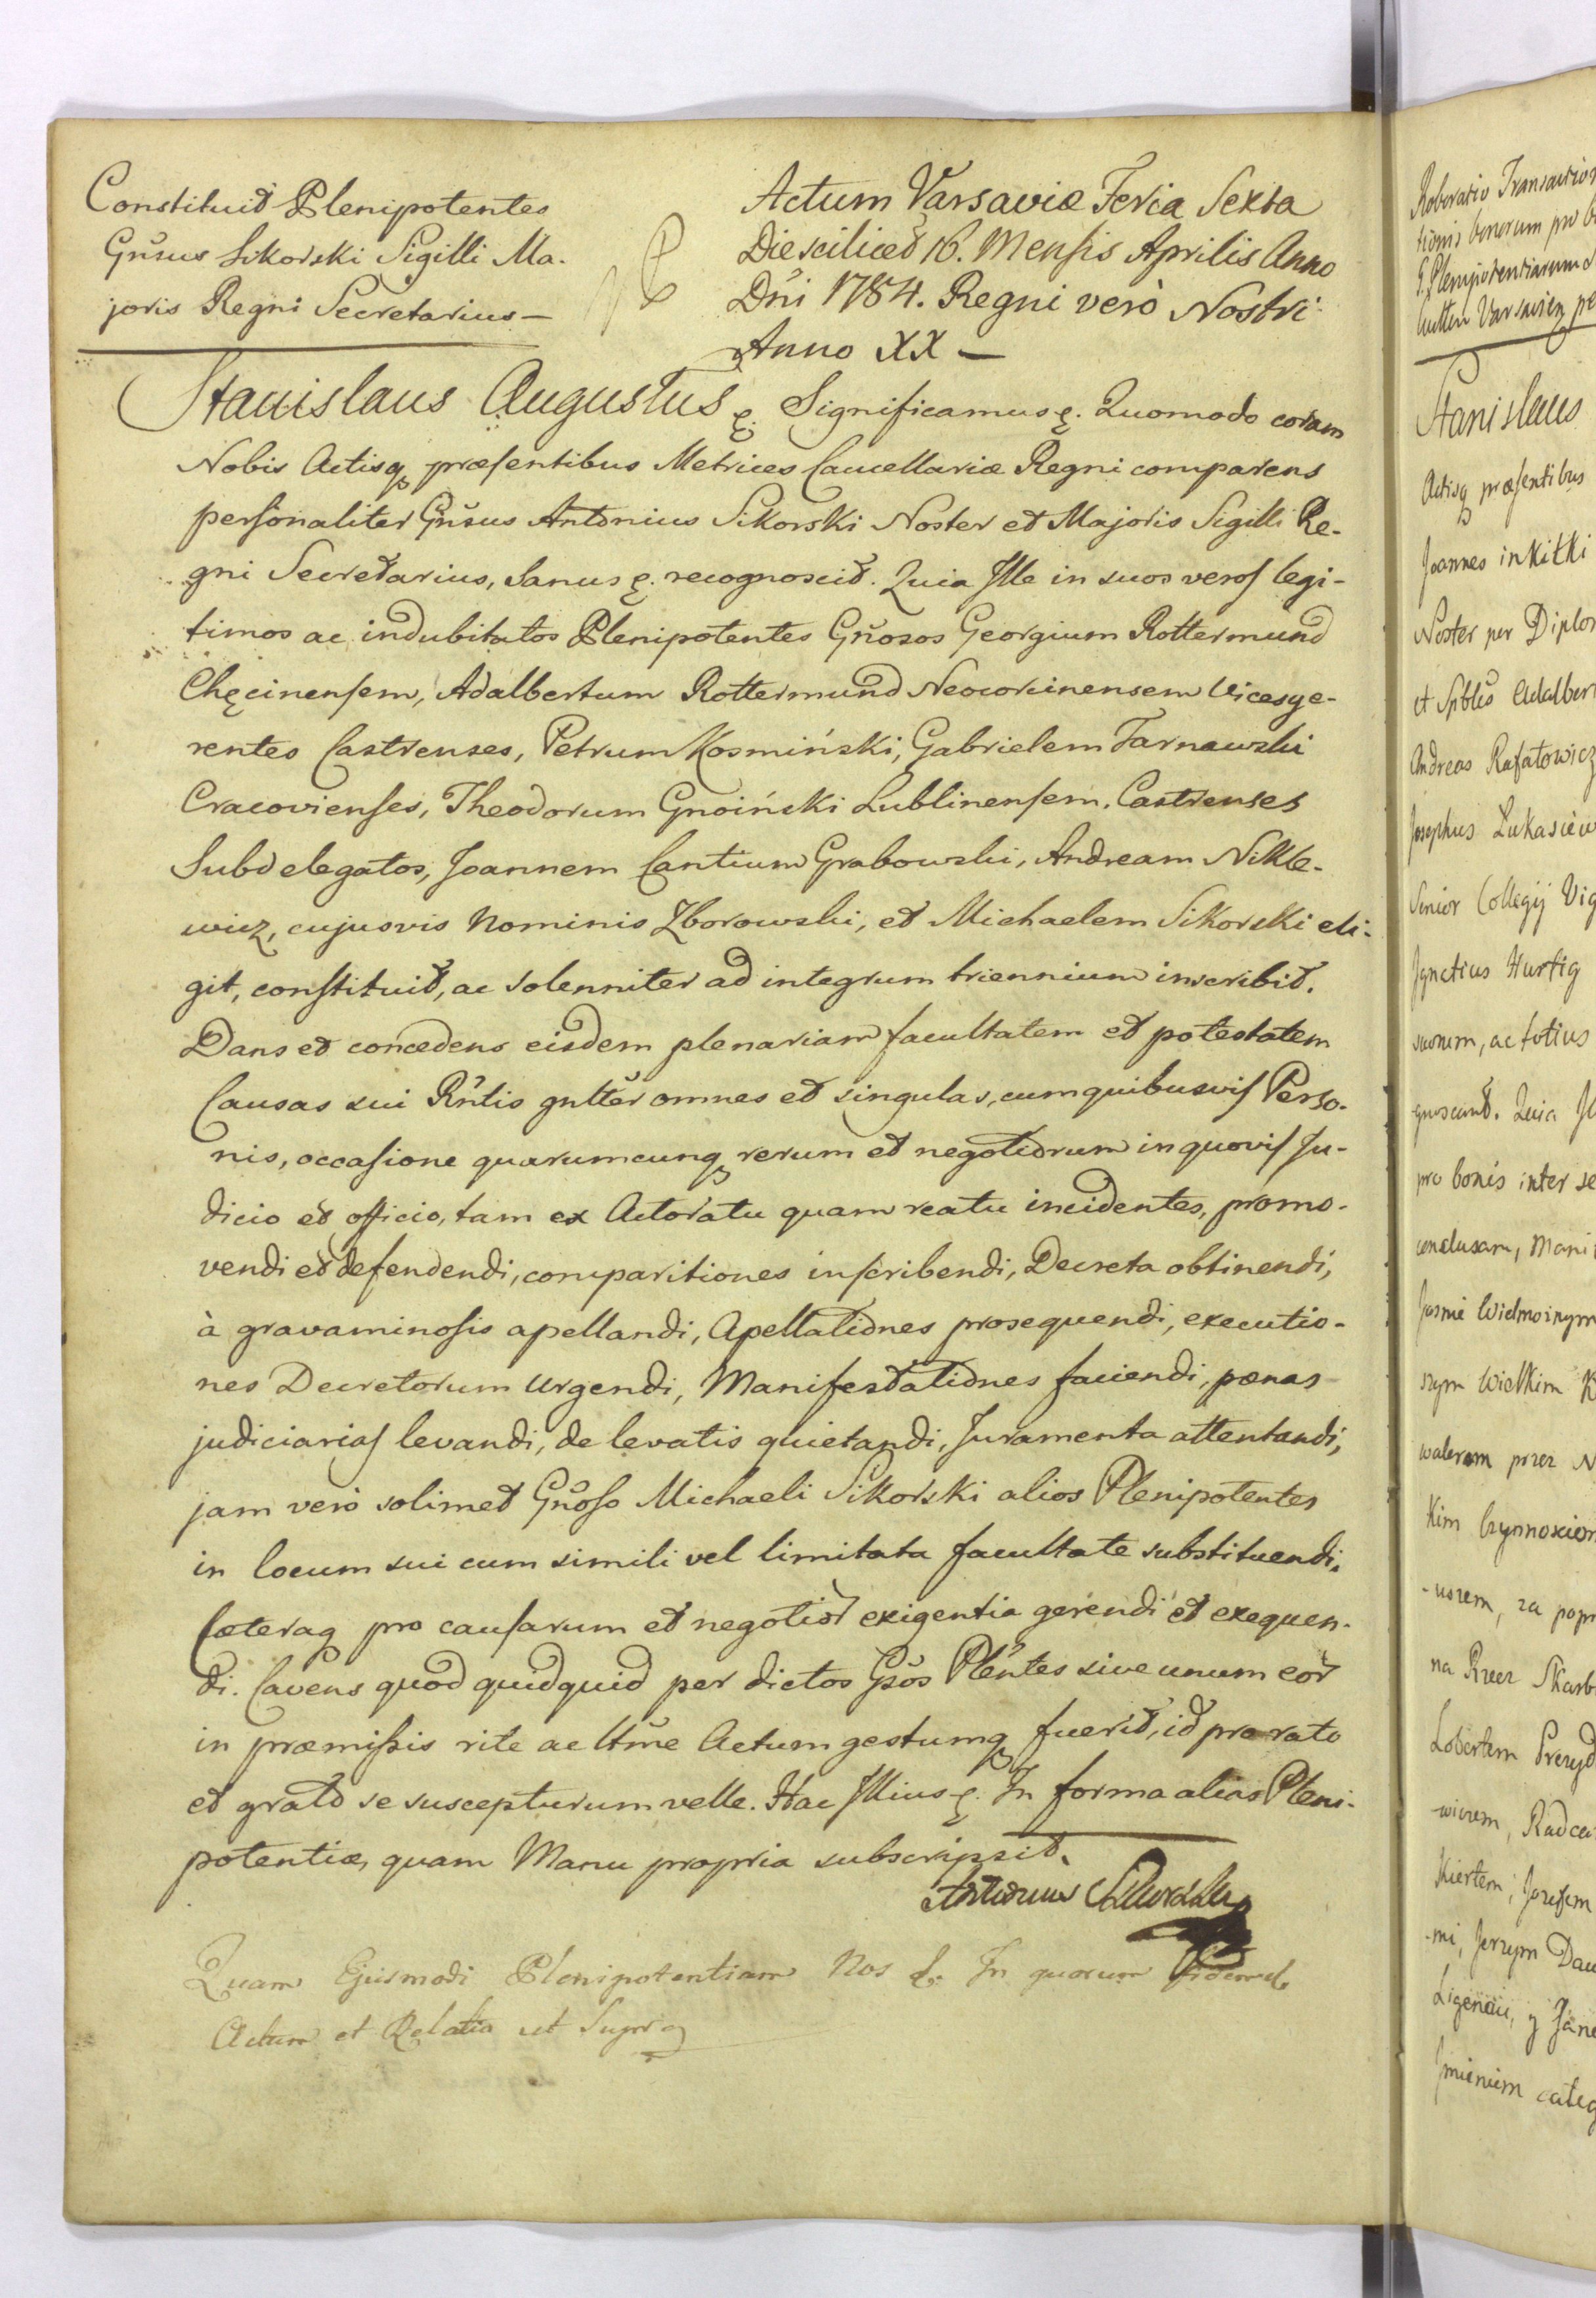 Constituit Plenipotentes
Gnsus Sikorski Sigilli Ma.
joris Regni Secretarius —
Actum Varsaviæ Feria Sexta
Die scilicet 16. Mensis Aprilis Anno
Dni 1784. Regni verò Nostri
Anno XX —
Stanislaus Augustus &. Significamus &. Quomodo coram
Nobis Actisq præsentibus Metrices Cancellariæ Regni comparens
personaliter Gnsus Antonius Sikorski Noster et Majoris Sigilli Re-
gni Secretarius, Sanus &. recognoscit. Quia Ille in suos veros legi-
timos ac indubitatos Plenipotentes Gnosos Georgium Rottermund
Chęcinensem, Adalbertum Rottermund Neocorcinensem Vicesge-
rentes Castrenses, Petrum Kosmiński, Gabrielem Tarnawski
Cracovienses, Theodorum Gnoiński Lublinensem, Castrenses
Subdelegatos, Joannem Cantium Grabowski, Andream Nikle-
wicz, cujusvis Nominis Zborowski, et Michaelem Sikorski eli-
git, constituit, ac solenniter ad integrum triennium inscribit.
Dans et concedens eisdem plenariam facultatem et potestatem
Causas sui Rntis gnlter omnes et singulas, cum quibusvis Perso-
nis, occasione quarumcunq rerum et negotiorum in quovis Ju-
dicio et officio, tam ex Actoratu quam reatu incidentes, promo-
vendi et defendendi, comparitiones inscribendi, Decreta obtinendi,
à gravaminosis apellandi, Apellationes prosequendi, executio-
nes Decretorum urgendi, Manifestationes faciendi, pænas
judiciarias levandi, de levatis quietandi, Juramenta attentandi,
jam verò solimet Gnoso Michaeli Sikorski alios Plenipotentes
in locum sui cum simili vel limitata facultate substituendi.
Cæteraq pro causarum et negotior exigentia gerendi et exequen-
di. Cavens quod quidquid per dictos Gsos Plentes sive unum eor
in præmissis rite ac ltme Actum gestumq fuerit, id pro rato
et grato se suscepturum velle. Hac Illius &. In forma alias Pleni-
potentiæ, quam Manu propria subscripsit.
Antonius Sikorski
Quam Ejusmodi Plenipotentiam Nos &. In quorum fidem &.
Actum et Relatio ut Supra
Roboratio Transactio
tionis bonorum pro
Plenipotentiarum
Stanislaus
Actisq præsentibus
Joannes in Kitki
Noster per Diplo
et Spblis Adalber
Andreas Rafałowicz
Josephus Łukasiew
Senior Collegij Vig
Ignatius Hurtig
suorum, ac totius
gnoscunt. Quia Il
pro bonis inter se
conclusam, Mani
Jasnie Wielmoznym
szym Wielkim K
walerem przez N
na Rzecz Skarb
mi, Jerzym Dau